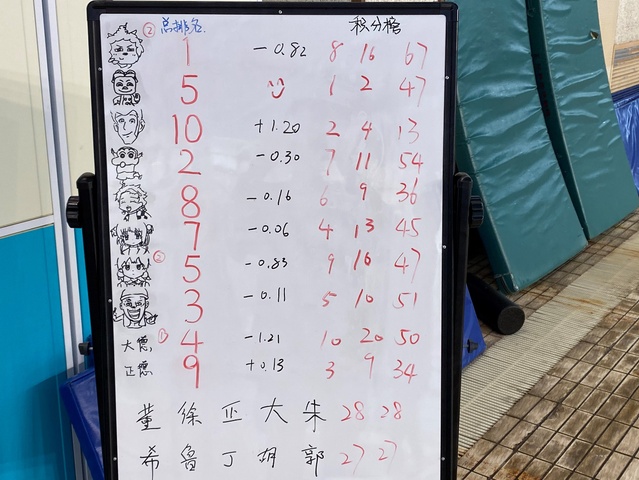 ② 总排名 积分榜
1 -0.82 8 16 67
5 1 2 47
10 +1.20 2 4 13
2 -0.30 7 11 54
8 -0.16 6 9 36
7 -0.06 4 13 45
② 5 -0.83 9 16 47
3 -0.11 5 10 51
大德 ① 4 -1.21 10 20 50
正德 9 +0.13 3 9 34
董 徐 亚 大 朱 28 28
希 鲁 丁 胡 郭 27 27